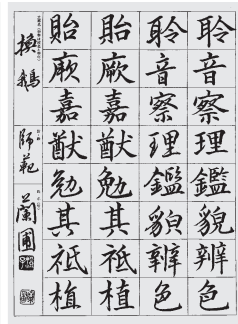 聆音察理鑑貌辨色
聆音察理鑑貌辨色
貽厥嘉猷勉其祗植
貽厥嘉猷勉其祗植
換鵝
師範
蘭圃